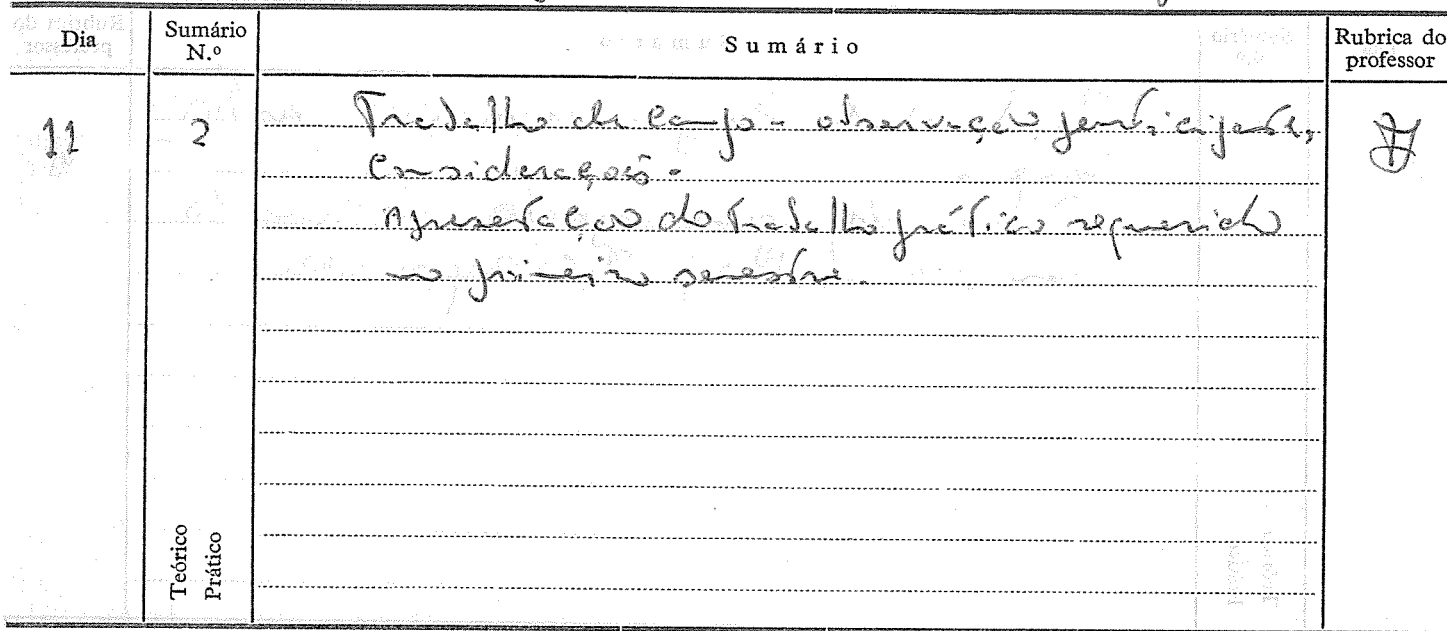 Dia Sumário N.º Sumário Rubrica do professor
11 2 Trabalho de campo - observação participante,
considerações -
Apresentação do trabalho prático requerido
no primeiro semestre.
Teórico
Prático